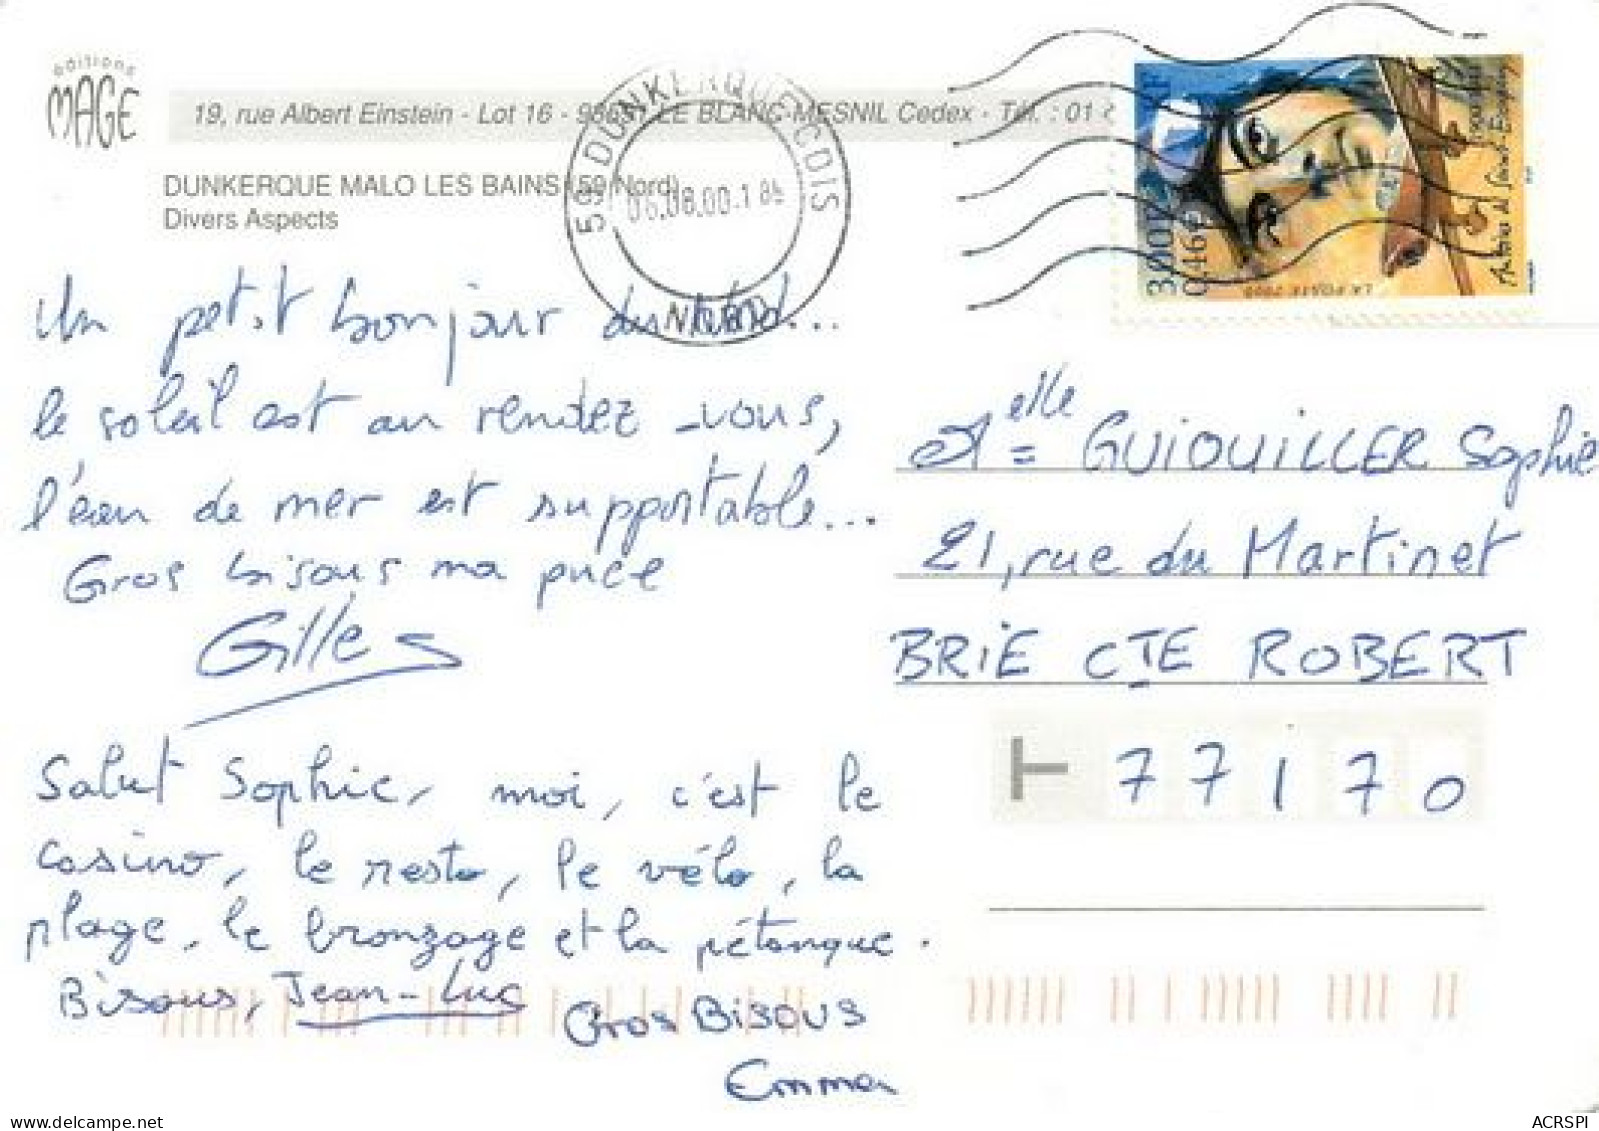 éditions
MAGE
19, rue Albert Einstein - Lot 16 - LE BLANC-MESNIL Cedex - Tél. : 01
DUNKERQUE MALO LES BAINS (59 Nord)
Divers Aspects
59 DUNKERQUE CDIS
06.08.00.
NORD
3,00F
0,46€
LA POSTE 2000
Antoine de Saint-Exupéry
Un petit bonjour du Nord...
le soleil est au rendez-vous,
l'eau de mer est supportable...
Gros bisous ma puce
Gilles
Salut Sophie, moi, c'est le
casino, le resto, le vélo, la
plage, le bronzage et la pétanque.
Bisous, Jean-Luc
Gros Bisous
Emma
Melle GUIOUILLER Sophie
21, rue du Martinet
BRIE CTE ROBERT
77170
ACRSPI